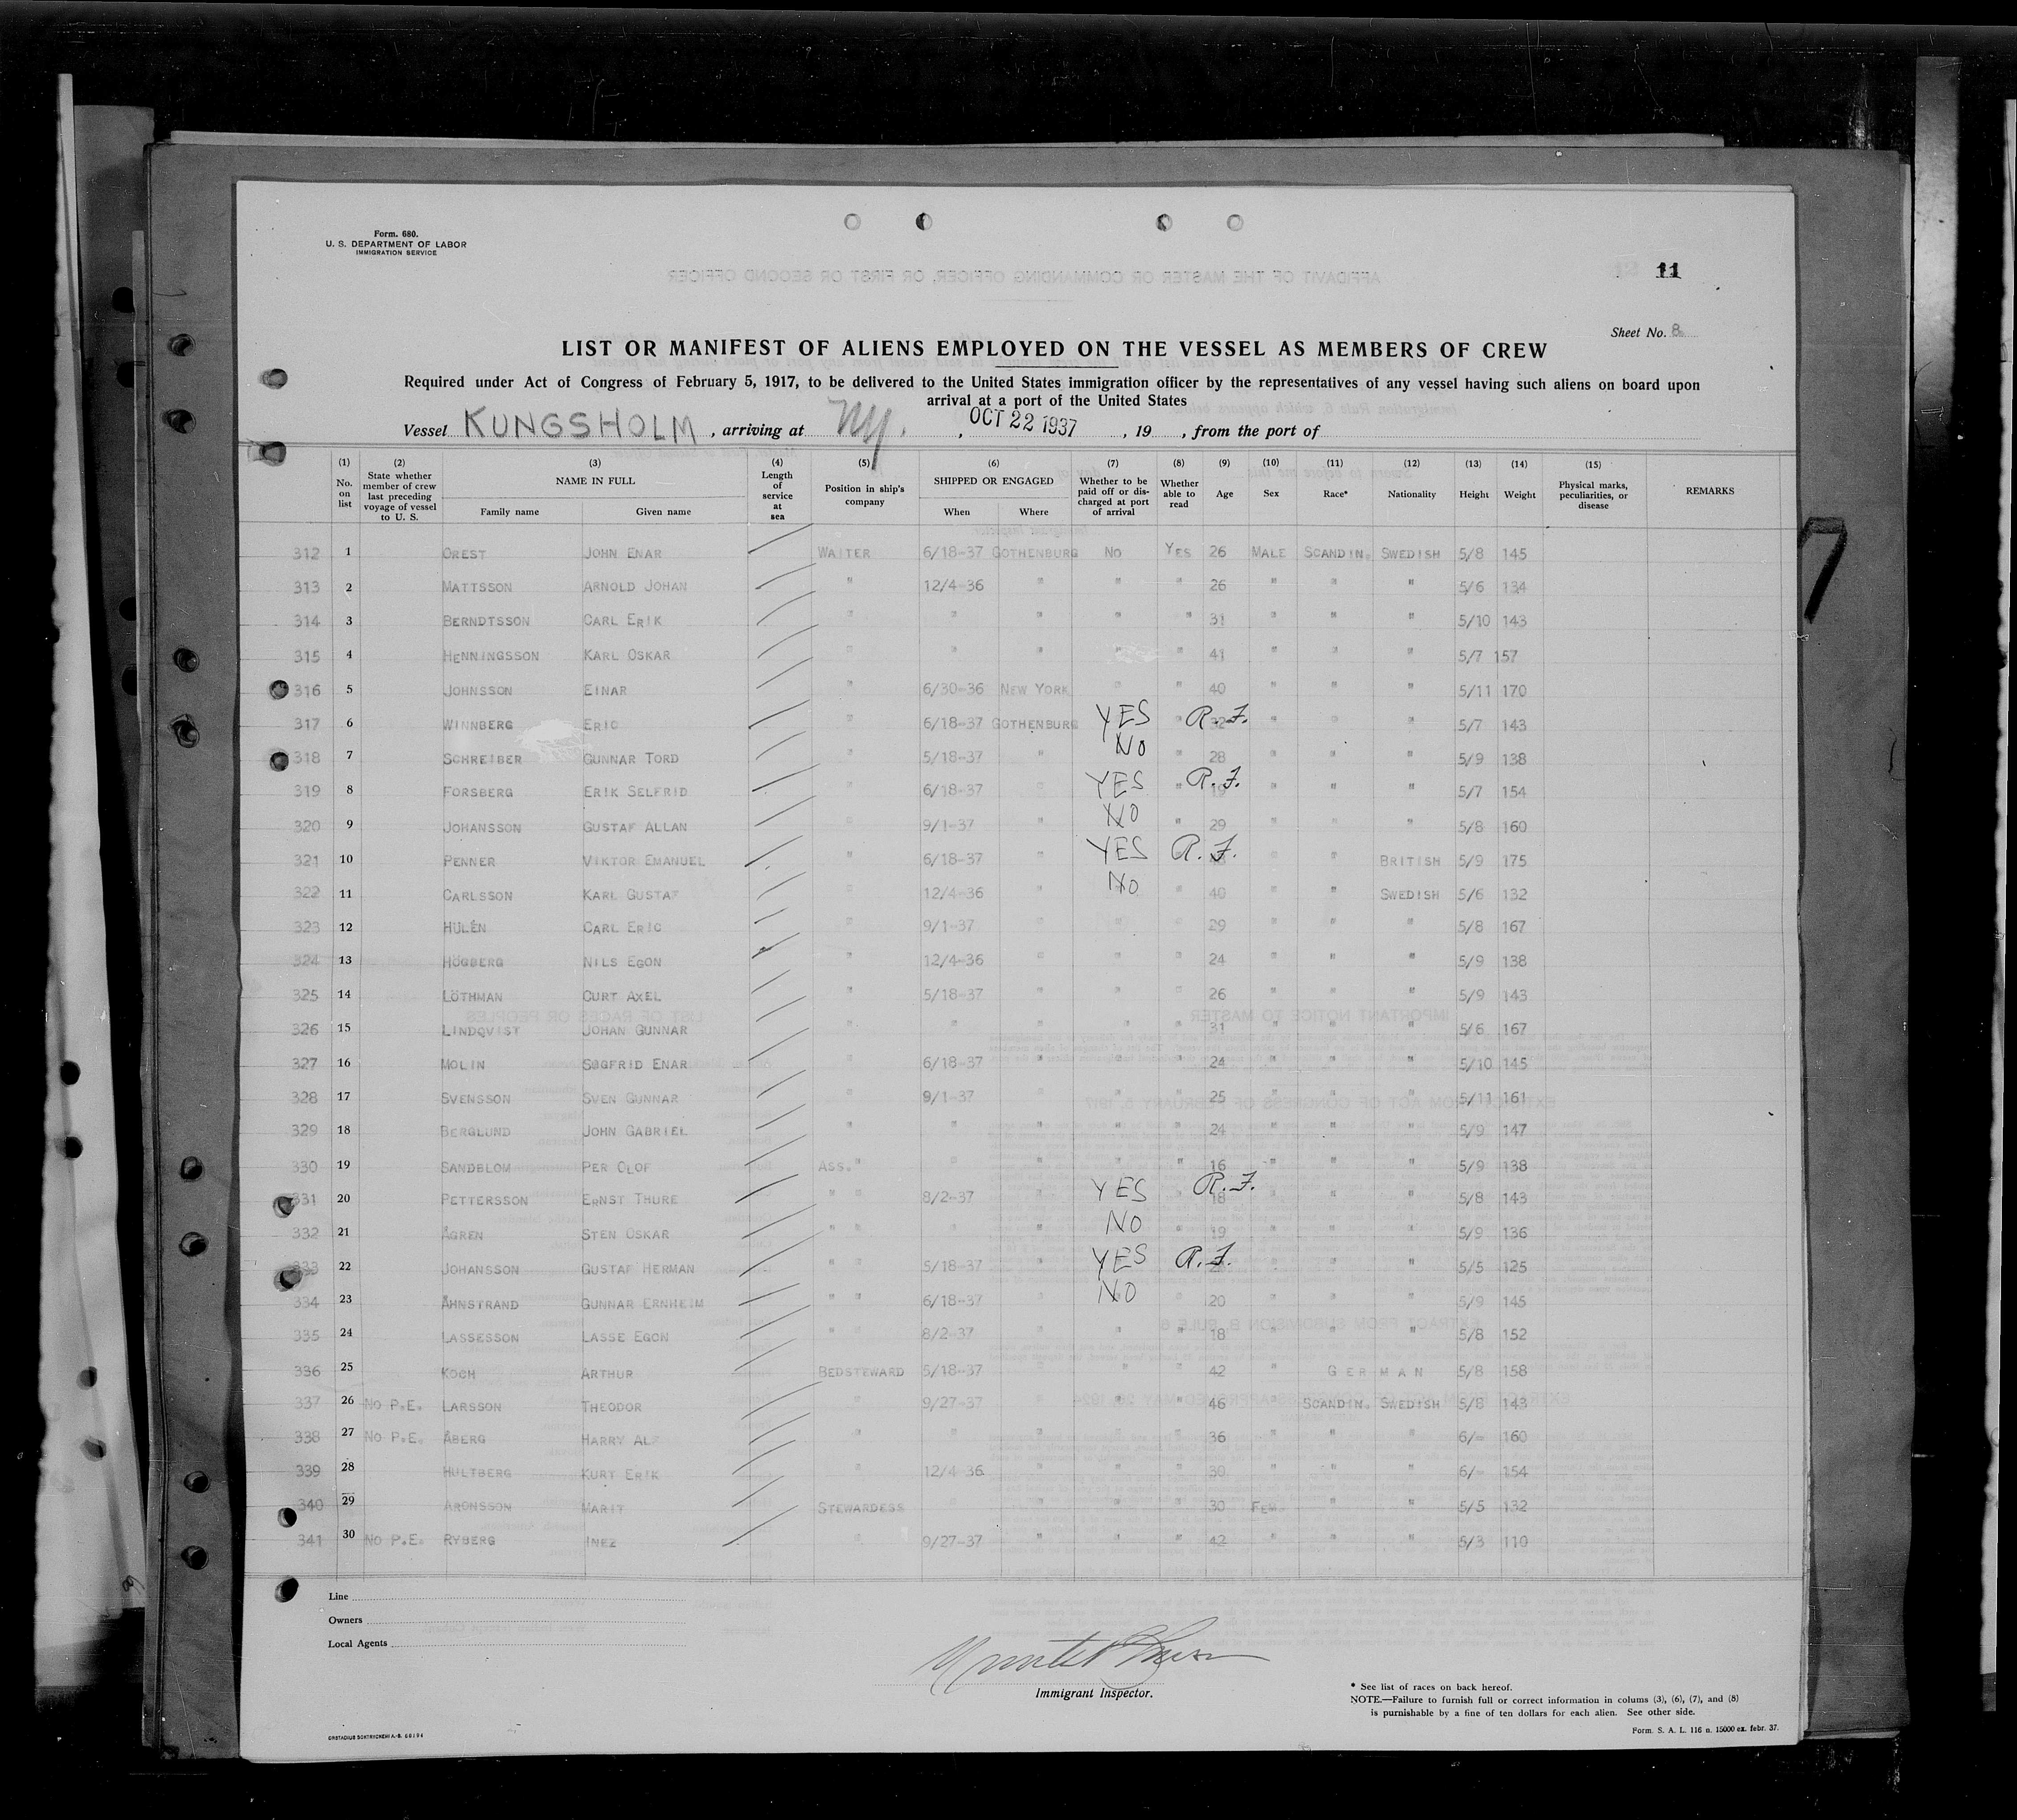 Form. 680.
U. S. DEPARTMENT OF LABOR
IMMIGRATION SERVICE
11
Sheet No. 8
LIST OR MANIFEST OF ALIENS EMPLOYED ON THE VESSEL AS MEMBERS OF CREW
Required under Act of Congress of February 5, 1917, to be delivered to the United States immigration officer by the representatives of any vessel having such aliens on board upon
arrival at a port of the United States
Vessel KUNGSHOLM, arriving at NY., OCT 22 1937, 19, from the port of
(1) No. on list (2) State whether member of crew last preceding voyage of vessel to U. S. (3) NAME IN FULL Family name Given name (4) Length of service at sea (5) Position in ship's company (6) SHIPPED OR ENGAGED When Where (7) Whether to be paid off or discharged at port of arrival (8) Whether able to read (9) Age (10) Sex (11) Race* (12) Nationality (13) Height (14) Weight (15) Physical marks, peculiarities, or disease REMARKS
312 1 OREST JOHN ENAR WAITER 6/18-37 GOTHENBURG NO YES 26 MALE SCANDIN. SWEDISH 5/8 145
313 2 MATTSSON ARNOLD JOHAN " 12/4-36 " " " 26 " " " 5/6 134
314 3 BERNDTSSON CARL ERIK " " " " " 31 " " " 5/10 143
315 4 HENNINGSSON KARL OSKAR " " " " " 41 " " " 5/7 157
316 5 JOHNSSON EINAR " 6/30-36 NEW YORK " " 40 " " " 5/11 170
317 6 WINNBERG ERIC " 6/18-37 GOTHENBURG YES " R.F. " " " 5/7 143
318 7 SCHREIBER GUNNAR TORD " 5/18-37 " NO " 28 " " " 5/9 138
319 8 FORSBERG ERIK SELFRID " 6/18-37 YES " R.F. 19 " " " 5/7 154
320 9 JOHANSSON GUSTAF ALLAN " 9/1-37 " NO " 29 " " " 5/8 160
321 10 PENNER VIKTOR EMANUEL " 6/18-37 " YES R.F. " " BRITISH 5/9 175
322 11 CARLSSON KARL GUSTAF " 12/4-36 " NO " 40 " " SWEDISH 5/6 132
323 12 HULÉN CARL ERIC " 9/1-37 " " " 29 " " " 5/8 167
324 13 HÖGBERG NILS EGON " 12/4-36 " " " 24 " " " 5/9 138
325 14 LÖTHMAN CURT AXEL " 5/18-37 " " " 26 " " " 5/9 143
326 15 LINDQVIST JOHAN GUNNAR " " " " " 31 " " " 5/6 167
327 16 MOLIN SIGFRID ENAR " 6/18-37 " " " 24 " " " 5/10 145
328 17 SVENSSON SVEN GUNNAR " 9/1-37 " " " 25 " " " 5/11 161
329 18 BERGLUND JOHN GABRIEL " " " " " 24 " " " 5/9 147
330 19 SANDBLOM PER OLOF ASS. " " " " " 16 " " " 5/9 138
331 20 PETTERSSON ERNST THURE " " 8/2-37 " YES R.F. 18 " " " 5/8 143
332 21 ÅGREN STEN OSKAR " " " " NO " 19 " " " 5/9 136
333 22 JOHANSSON GUSTAF HERMAN " " 5/18-37 " YES R.F. " " " 5/5 125
334 23 ÅHNSTRAND GUNNAR ERNHEIM " " 6/18-37 " NO " 20 " " " 5/9 145
335 24 LASSESSON LASSE EGON 8/2-37 " " " 18 " " " 5/8 152
336 25 KOCH ARTHUR BEDSTEWARD 5/18-37 " " 42 " GERMAN 5/8 158
337 26 NO P.E. LARSSON THEODOR " 9/27-37 " " 46 " SCANDIN. SWEDISH 5/8 143
338 27 NO P.E. ÅBERG HARRY ALF " " " " " 36 " " " 6/- 160
339 28 HULTBERG KURT ERIK " 12/4-36 " " " 30 " " " 6/- 154
340 29 ARONSSON MARIT STEWARDESS " " " " 30 FEM. " " 5/5 132
341 30 NO P.E. RYBERG INEZ " 9/27-37 " " " 42 " " " 5/3 110
7
Line
Owners
Local Agents
Immigrant Inspector.
* See list of races on back hereof.
NOTE.—Failure to furnish full or correct information in colums (3), (6), (7), and (8)
is punishable by a fine of ten dollars for each alien. See other side.
Form. S. A. L. 116 n. 15000 ex. febr. 37.